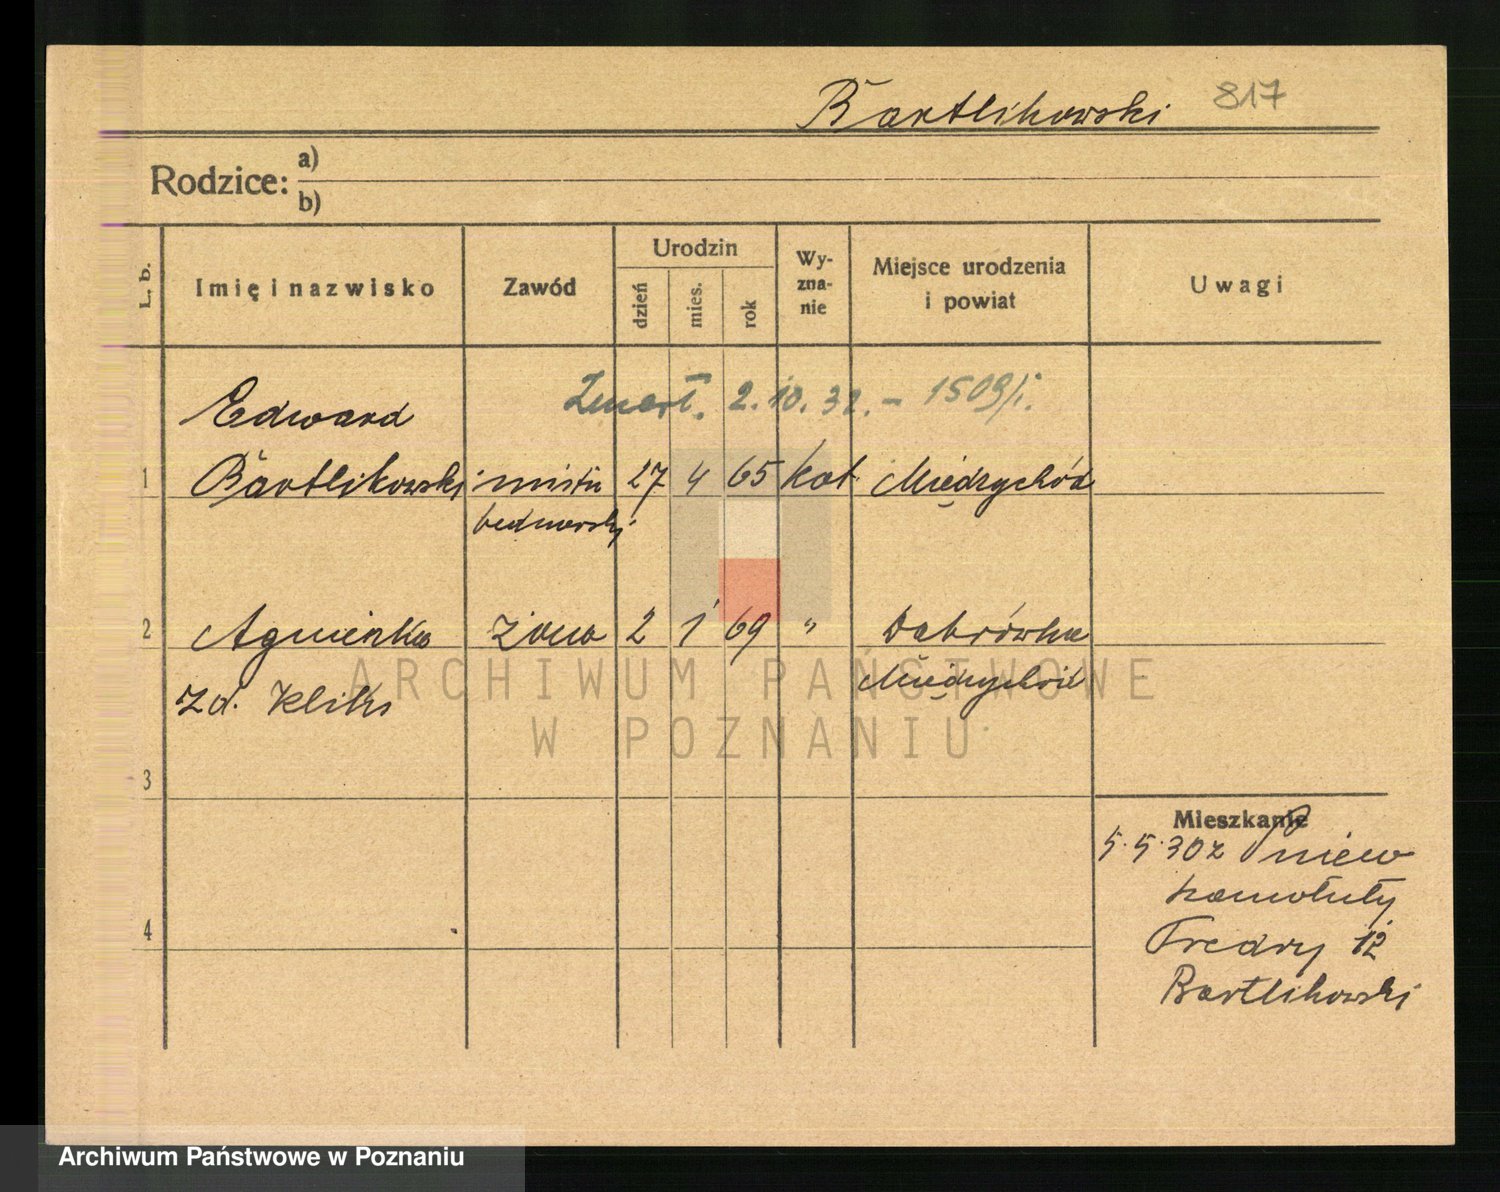 Bartlikowski 817
Rodzice: a)
b)
L. b. Imię i nazwisko Zawód Urodzin dzień mies. rok Wy-zna-nie Miejsce urodzenia i powiat Uwagi
Edward Zmarł. 2.10.32. – 1509/i.
1 Bartlikowski mistrz 27 4 65 kat Międzychód
bednarski
2 Agnieszka żona 2 1 69 " Dąbrówka
zd. Kliks Międzychód
ARCHIWUM PAŃSTWOWE
W POZNANIU
3
Mieszkanie
5.5.30 z Pniew
Szamotuły
4 Fredry 12
Bartlikowski
Archiwum Państwowe w Poznaniu